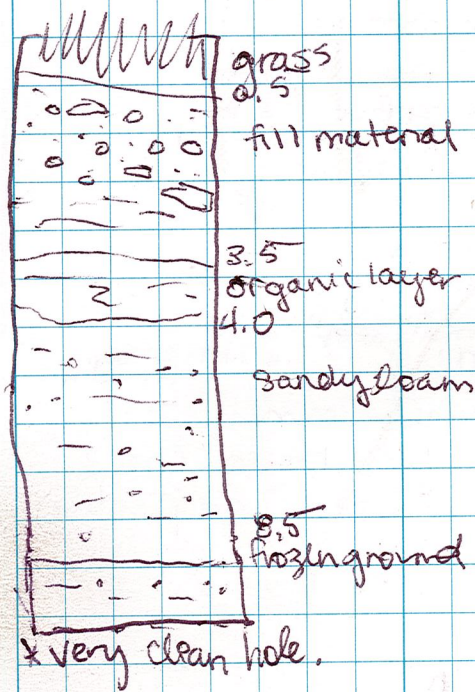 grass
0.5
fill material
3.5
organic layer
4.0
sandy loam
8.5
frozen ground
* very clean hole.